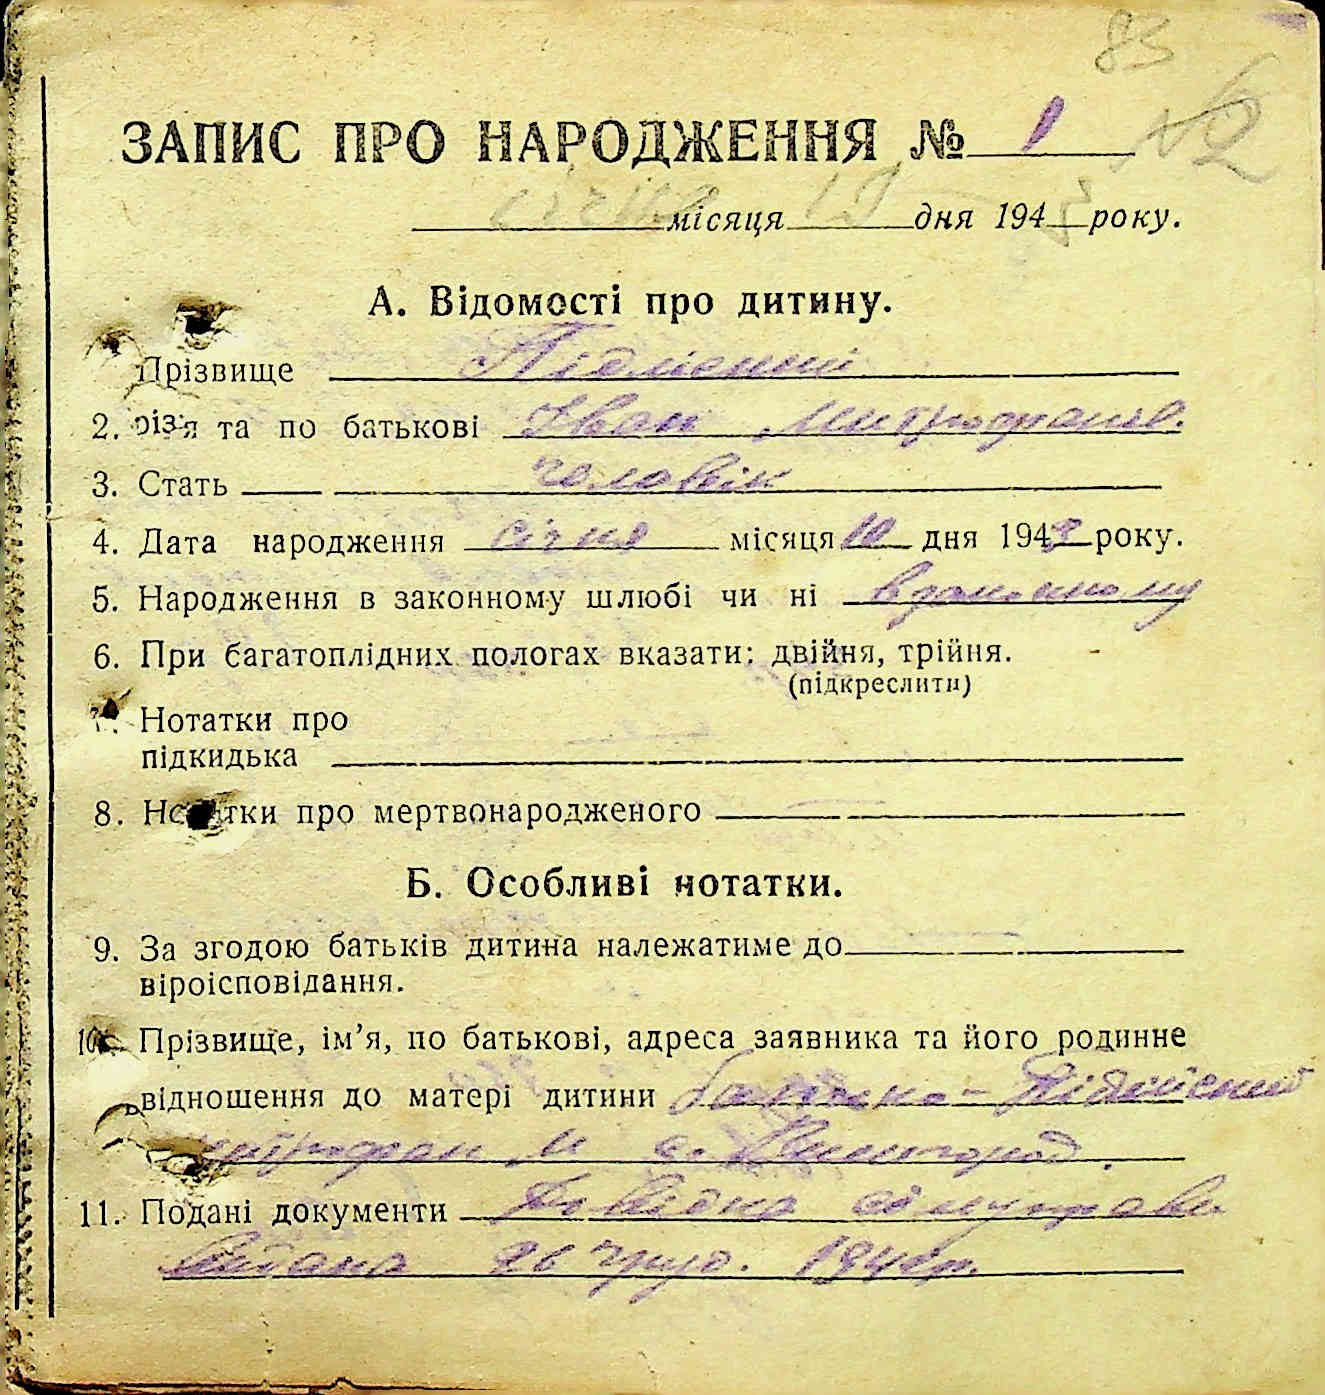 83
ЗАПИС ПРО НАРОДЖЕННЯ № 1
січня місяця 19 дня 1943 року.
А. Відомості про дитину.
Прізвище Підмісний
2. різ'я та по батькові Іван Митрофанів.
3. Стать чоловік
4. Дата народження січня місяця 10 дня 1943 року.
5. Народження в законному шлюбі чи ні в законному
6. При багатоплідних пологах вказати: двійня, трійня.
(підкреслити)
7. Нотатки про
підкидька
8. Нотатки про мертвонародженого
Б. Особливі нотатки.
9. За згодою батьків дитина належатиме до
віроісповідання.
10. Прізвище, ім’я, по батькові, адреса заявника та його родинне
відношення до матері дитини батько - Підмісний
Митрофан М с. Виногород.
11. Подані документи Довідка сільуправи
видана 26 груд. 1942р.